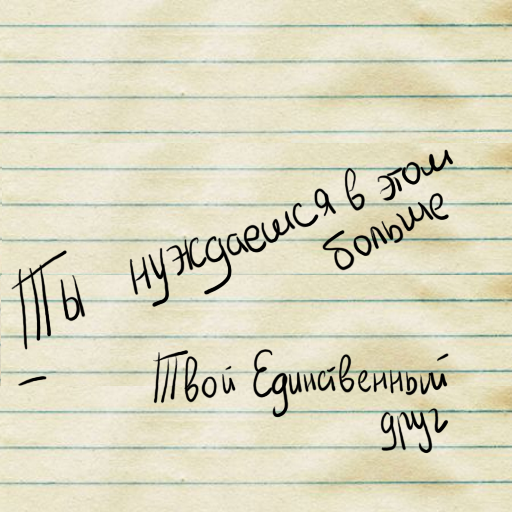 Ты нуждаешся в этом
больше
– Твой Единственный
друг